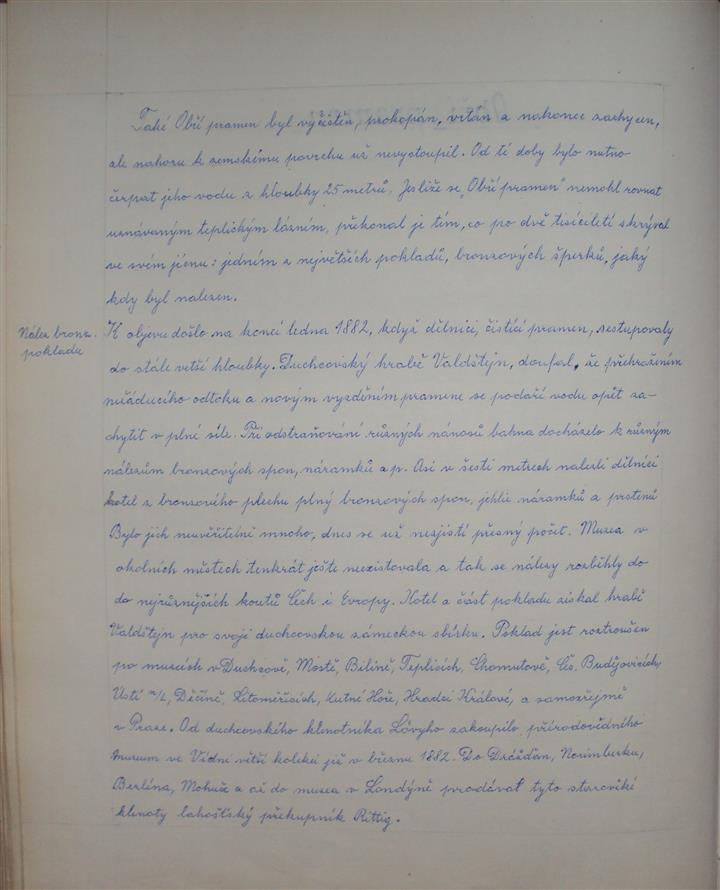 Také Obří pramen byl vyčištěn, prokopán, vrtán a nakonec zachycen,
ale nahoru k zemskému povrchu už nevystoupil. Od té doby bylo nutno
čerpat jeho vodu z hloubky 25 metrů. Jestliže se „Obří pramen" nemohl rovnat
uznávaným teplickým lázním, překonal je tím, co po dvě tisíciletí skrýval
ve svém jícnu: jedním z největších pokladů, bronzových šperků, jaký
kdy byl nalezen.
Nález bronz.
pokladu
K objevu došlo na konci ledna 1882, když dělníci, čistící pramen, sestupovaly
do stále větší hloubky. Duchcovský hrabě Valdštejn, doufal, že přehražením
nežáducího odtoku a novým vyzděním pramene se podaří vodu opět za-
chytit v plné síle. Při odstraňování různých nánosů bahna docházelo k různým
nálezům bronzových spon, náramků a p. Asi v šesti metrech nalezli dělníci
kotel z bronzového plechu plný bronzových spon, jehlic náramků a prstenů
Bylo jich neuvěřitelně mnoho, dnes se už nezjistí přesný počet. Muzea v
okolních městech tenkrát ještě neexistovala a tak se nálezy rozběhly do
do nejrůznějších koutů Čech i Evropy. Kotel a část pokladu získal hrabě
Valdštejn pro svoji duchcovskou zámeckou sbírku. Poklad jest roztroušen
po muzeích v Duchcově, Mostě, Bílině, Teplicích, Chomutově, Čes. Budějovicích,
Ústí n/L, Děčíně, Litoměřicích, Kutné Hoře, Hradci Králové, a samozřejmě
v Praze. Od duchcovského klenotníka Lövyho zakoupilo přírodovědního
museum ve Vídni větší kolekci již v březnu 1882. Do Drážďan, Norimberku,
Berlína, Mohuče a až do muzea v Londýně prodával tyto starověké
klenoty lahošťský překupník Rittig.